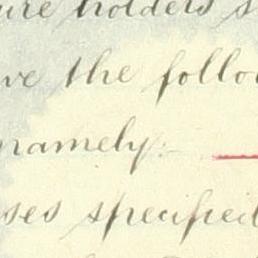 ure holders s
ve the follow
namely:
ses specified